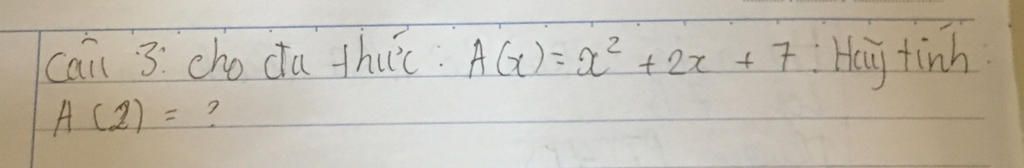 Câu 3: cho đa thức: A(x) = x² + 2x + 7: Hãy tính:
A(2) = ?